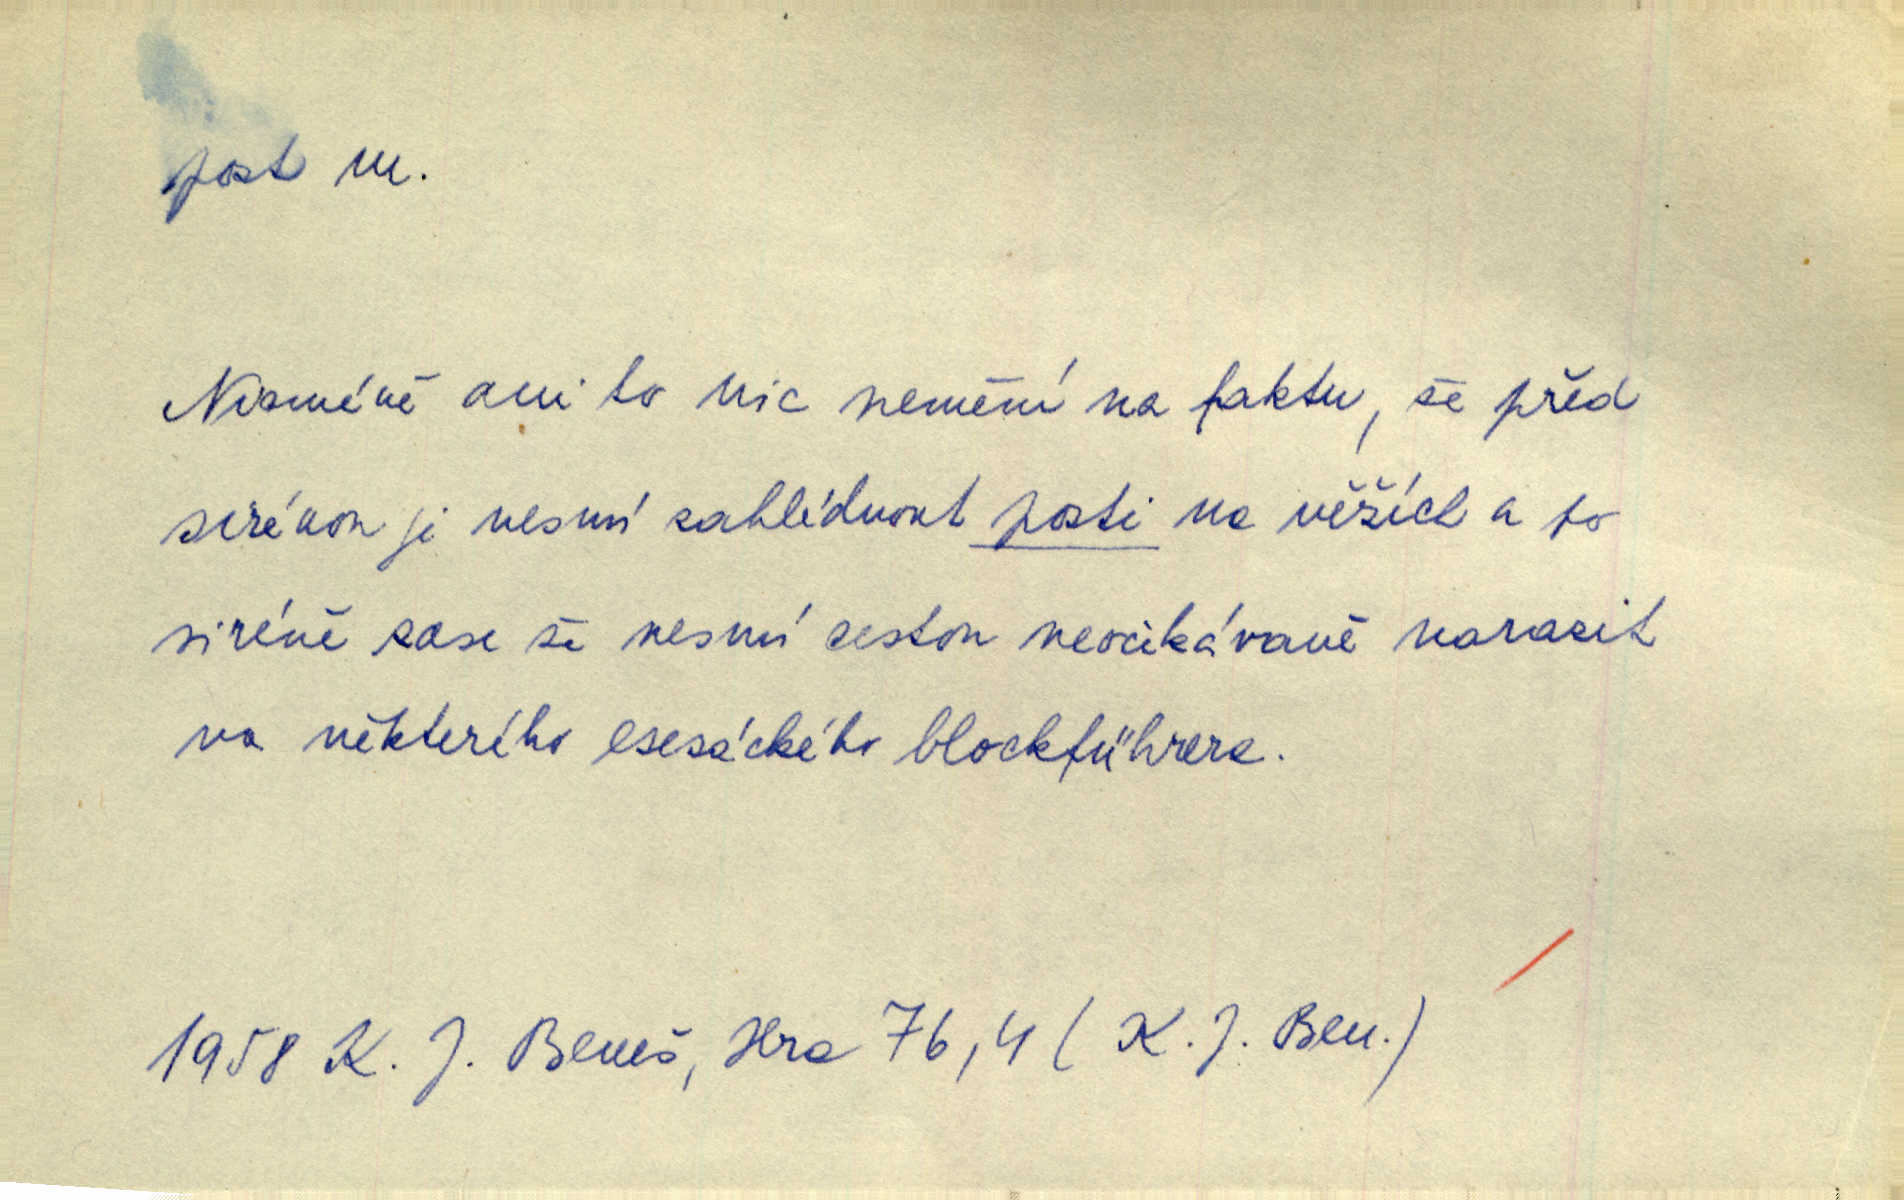 post m.
Nicméně ani to nic nemění na faktu, že před
sirénou ji nesmí zahlédnout posti na věžích a po
siréně zase že nesmí cestou neočekávaně narazit
na některého esesáckého blockführera.
1958 K. J. Beneš, Hra 76,4 (K. J. Ben.)